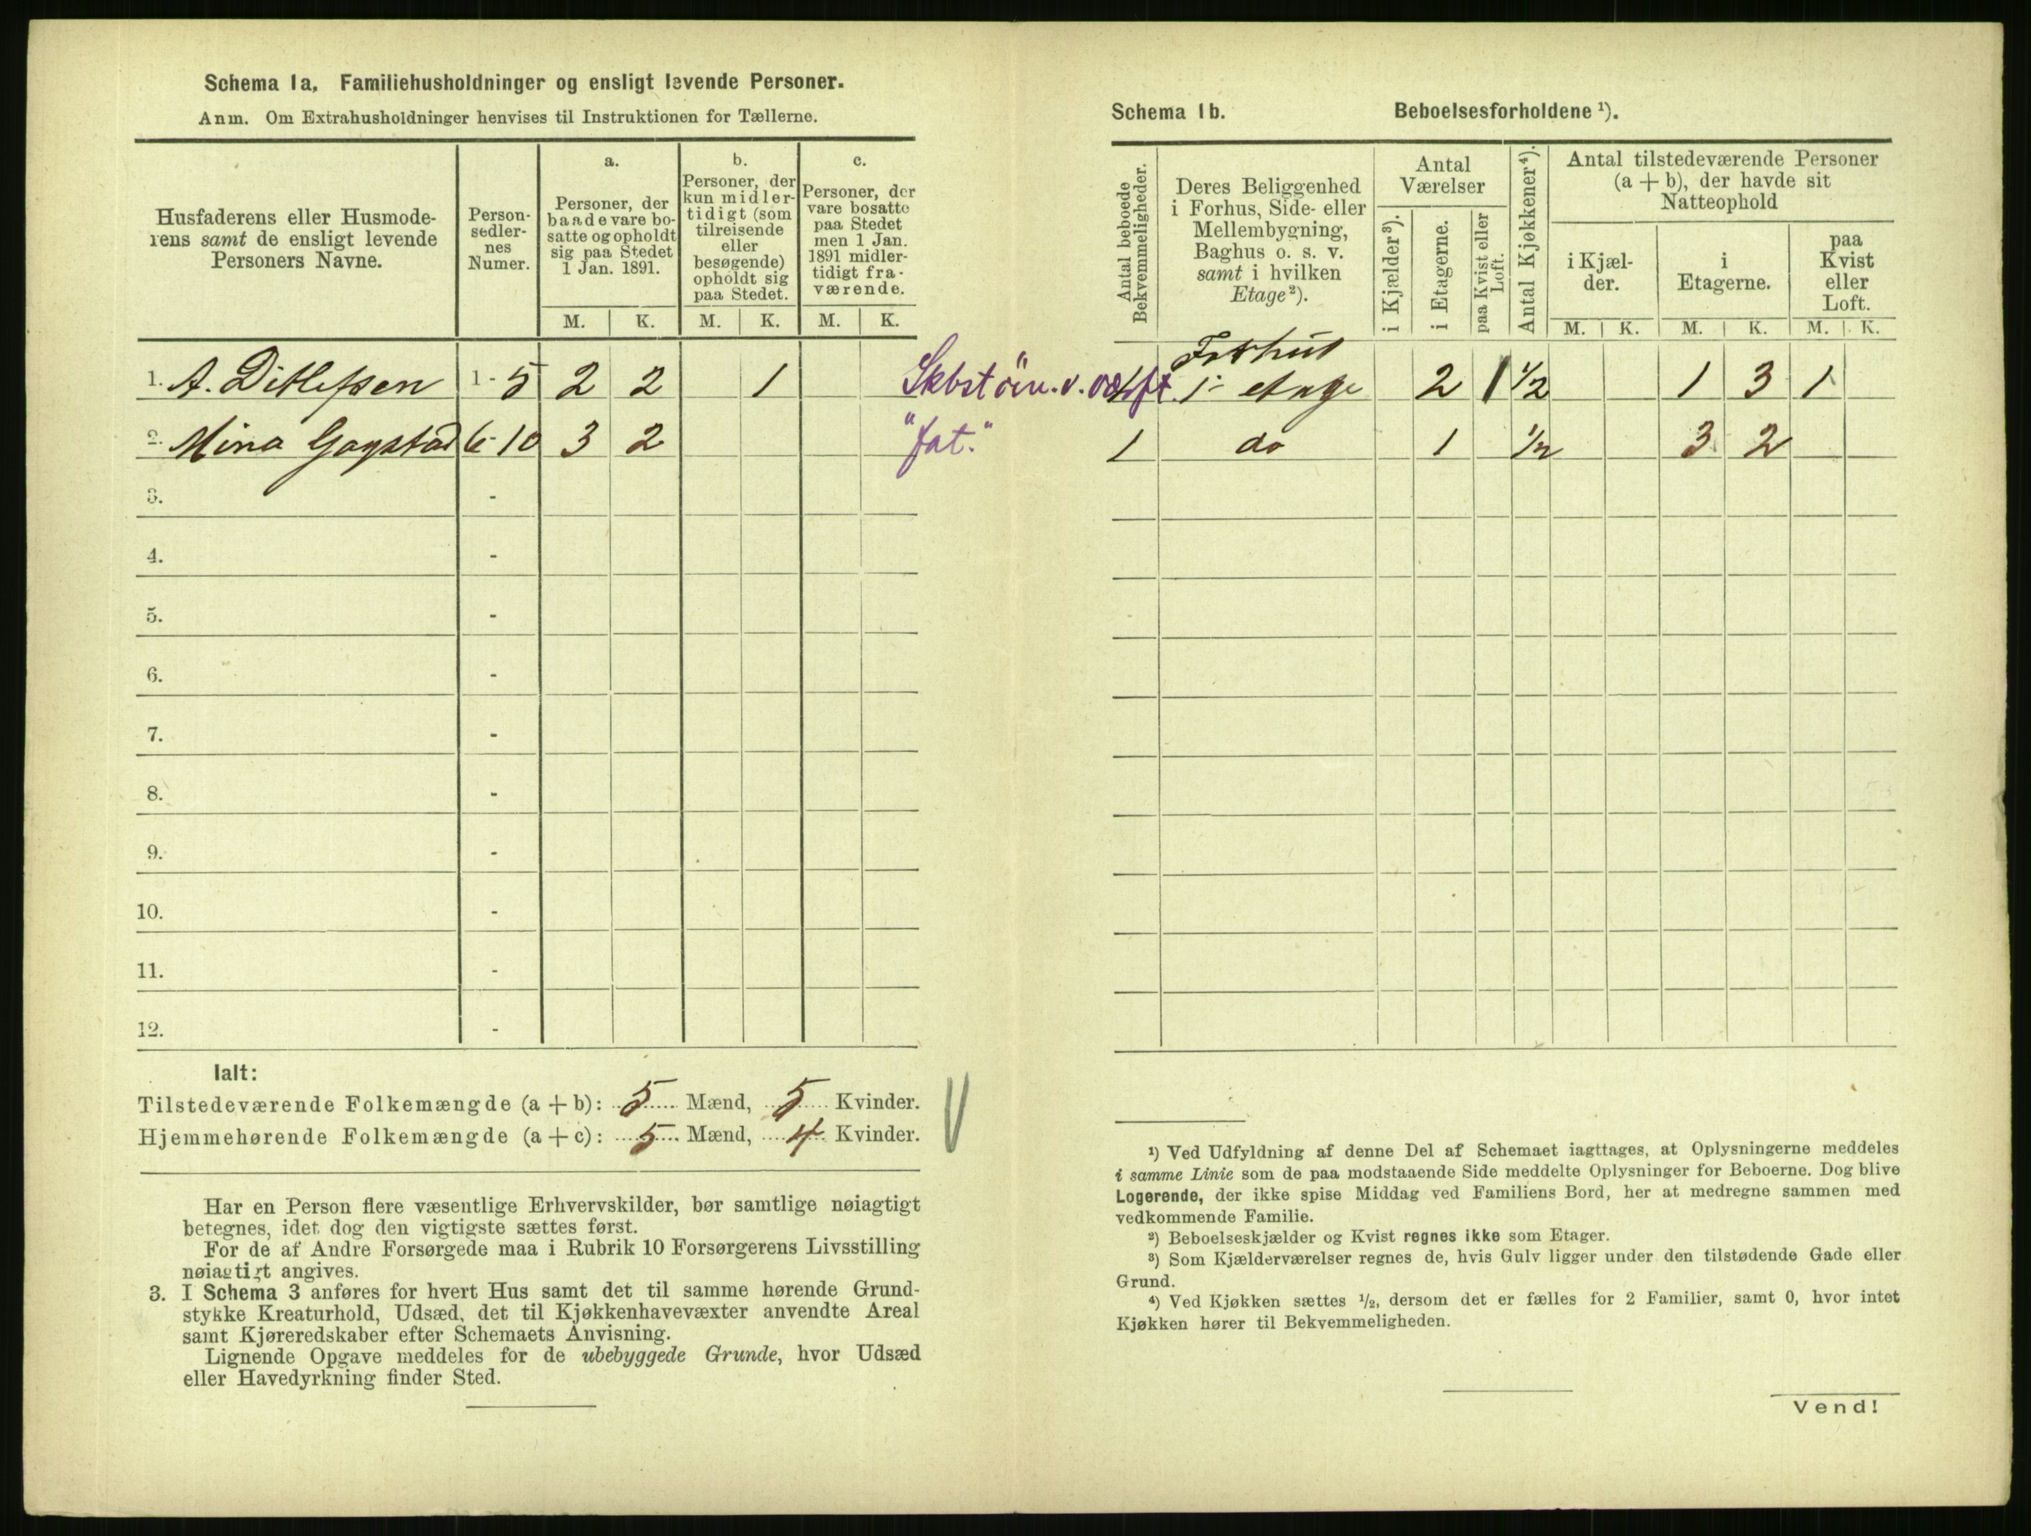 Schema 1a. Familiehusholdninger og ensligt levende Personer.
Anm. Om Extrahusholdninger henvises til Instruktionen for Tællerne.
Husfaderens eller Husmode-
rens samt de ensligt levende
Personers Navne.
Person-
sedler-
nes
Numer.
a.
Personer, der
baade vare bo-
satte og opholdt
sig paa Stedet
1 Jan. 1891.
b.
Personer, der
kun midler-
tidigt (som
tilreisende
eller
besøgende)
opholdt sig
paa Stedet.
c.
Personer, der
vare bosatte
paa Stedet
men 1 Jan.
1891 midler-
tidigt fra-
værende.
M. K. M. K. M. K.
1. A. Ditlefsen 1 - 5 2 2 1
2. Mina Gogstad 6 - 10 3 2 "fat."
3. -
4. -
5. -
6. -
7. -
8. -
9. -
10. -
11. -
12. -
Ialt:
Tilstedeværende Folkemængde (a + b): 5 Mænd, 5 Kvinder.
Hjemmehørende Folkemængde (a + c): 5 Mænd, 4 Kvinder.
Har en Person flere væsentlige Erhvervskilder, bør samtlige nøiagtigt
betegnes, idet dog den vigtigste sættes først.
For de af Andre Forsørgede maa i Rubrik 10 Forsørgerens Livsstilling
nøiagtigt angives.
3. I Schema 3 anføres for hvert Hus samt det til samme hørende Grund-
stykke Kreaturhold, Udsæd, det til Kjøkkenhavevæxter anvendte Areal
samt Kjøreredskaber efter Schemaets Anvisning.
Lignende Opgave meddeles for de ubebyggede Grunde, hvor Udsæd
eller Havedyrkning finder Sted.
Schema 1b. Beboelsesforholdene ¹).
Antal beboede
Bekvemmeligheder.
Deres Beliggenhed
i Forhus, Side- eller
Mellembygning,
Baghus o. s. v.
samt i hvilken
Etage²).
Antal
Værelser
i Kjælder³).
i Etagerne.
paa Kvist eller
Loft.
Antal Kjøkkener⁴).
Antal tilstedeværende Personer
(a + b), der havde sit
Natteophold
i Kjæl-
der.
i
Etagerne.
paa
Kvist
eller
Loft.
M. K. M. K. M. K.
Forhus
1- etage 2 1 ½ 1 3 1
1 do 1 ½ 3 2
¹) Ved Udfyldning af denne Del af Schemaet iagttages, at Oplysningerne meddeles
i samme Linie som de paa modstaaende Side meddelte Oplysninger for Beboerne. Dog blive
Logerende, der ikke spise Middag ved Familiens Bord, her at medregne sammen med
vedkommende Familie.
²) Beboelseskjælder og Kvist regnes ikke som Etager.
³) Som Kjælderværelser regnes de, hvis Gulv ligger under den tilstødende Gade eller
Grund.
⁴) Ved Kjøkken sættes ½, dersom det er fælles for 2 Familier, samt 0, hvor intet
Kjøkken hører til Bekvemmeligheden.
Vend!